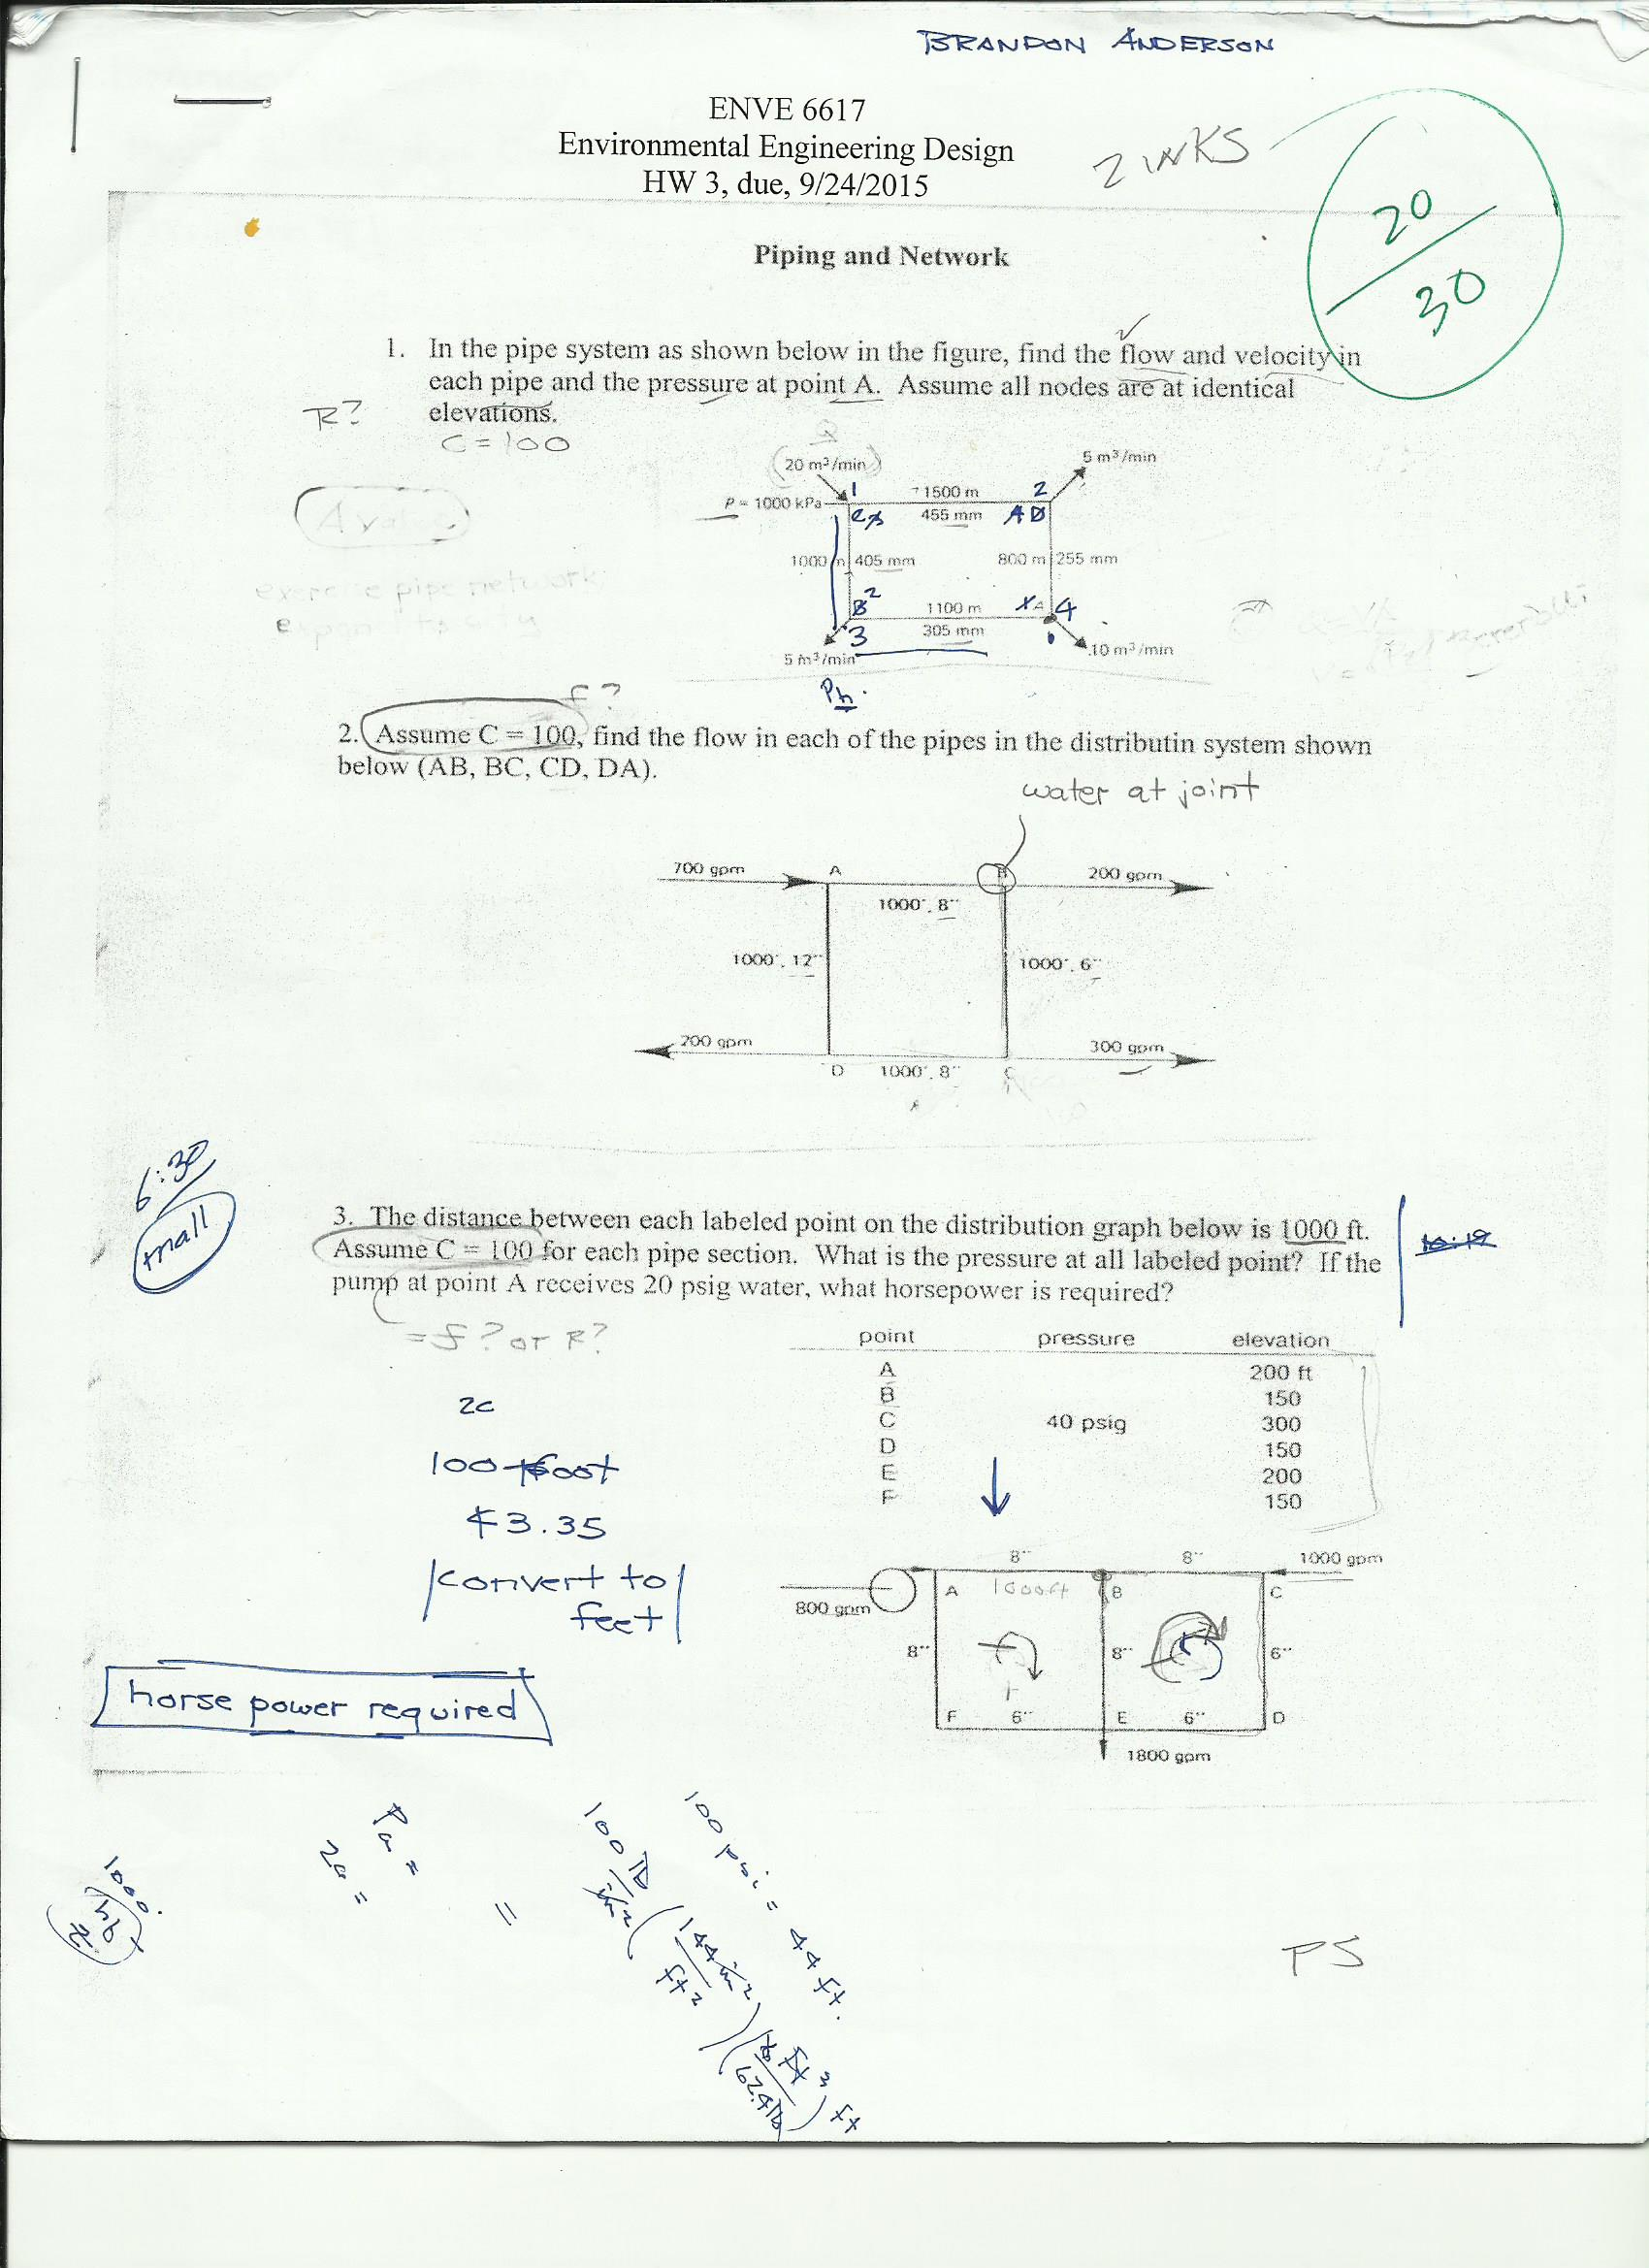 BRANDON ANDERSON
ENVE 6617
Environmental Engineering Design
HW 3, due, 9/24/2015
ZINKS
20
30
Piping and Network
1. In the pipe system as shown below in the figure, find the flow and velocity in
each pipe and the pressure at point A. Assume all nodes are at identical
elevations.
R?
C = 100
Q
20 m³/min
5 m³/min
P = 1000 kPa
1
1500 m
2
455 mm
A
1000 m
405 mm
800 m
255 mm
B
2
1100 m
X
A
4
3
305 mm
5 m³/min
10 m³/min
exercise pipe network
Ph.
f?
2. Assume C = 100, find the flow in each of the pipes in the distributin system shown
below (AB, BC, CD, DA).
water at joint
700 gpm
A
B
200 gpm
1000', 8"
1000', 12"
1000', 6"
200 gpm
300 gpm
D
1000', 8"
C
6:30
mall
3. The distance between each labeled point on the distribution graph below is 1000 ft.
Assume C = 100 for each pipe section. What is the pressure at all labeled point? If the
pump at point A receives 20 psig water, what horsepower is required?
10:19
= f? or R?
point pressure elevation
A 200 ft
B 150
C 40 psig 300
D 150
E 200
F 150
2c
100 foot
3.35
convert to
feet
8"
8"
1000 gpm
A
1000ft
B
C
800 gpm
8"
8"
6"
F
6"
E
6"
D
1800 gpm
horse power required
Pa =
Za =
=
100 psi = 44 ft.
100 lb/in² (144 in²/ft²) (ft³/62.4 lb) ft
1000.
PS